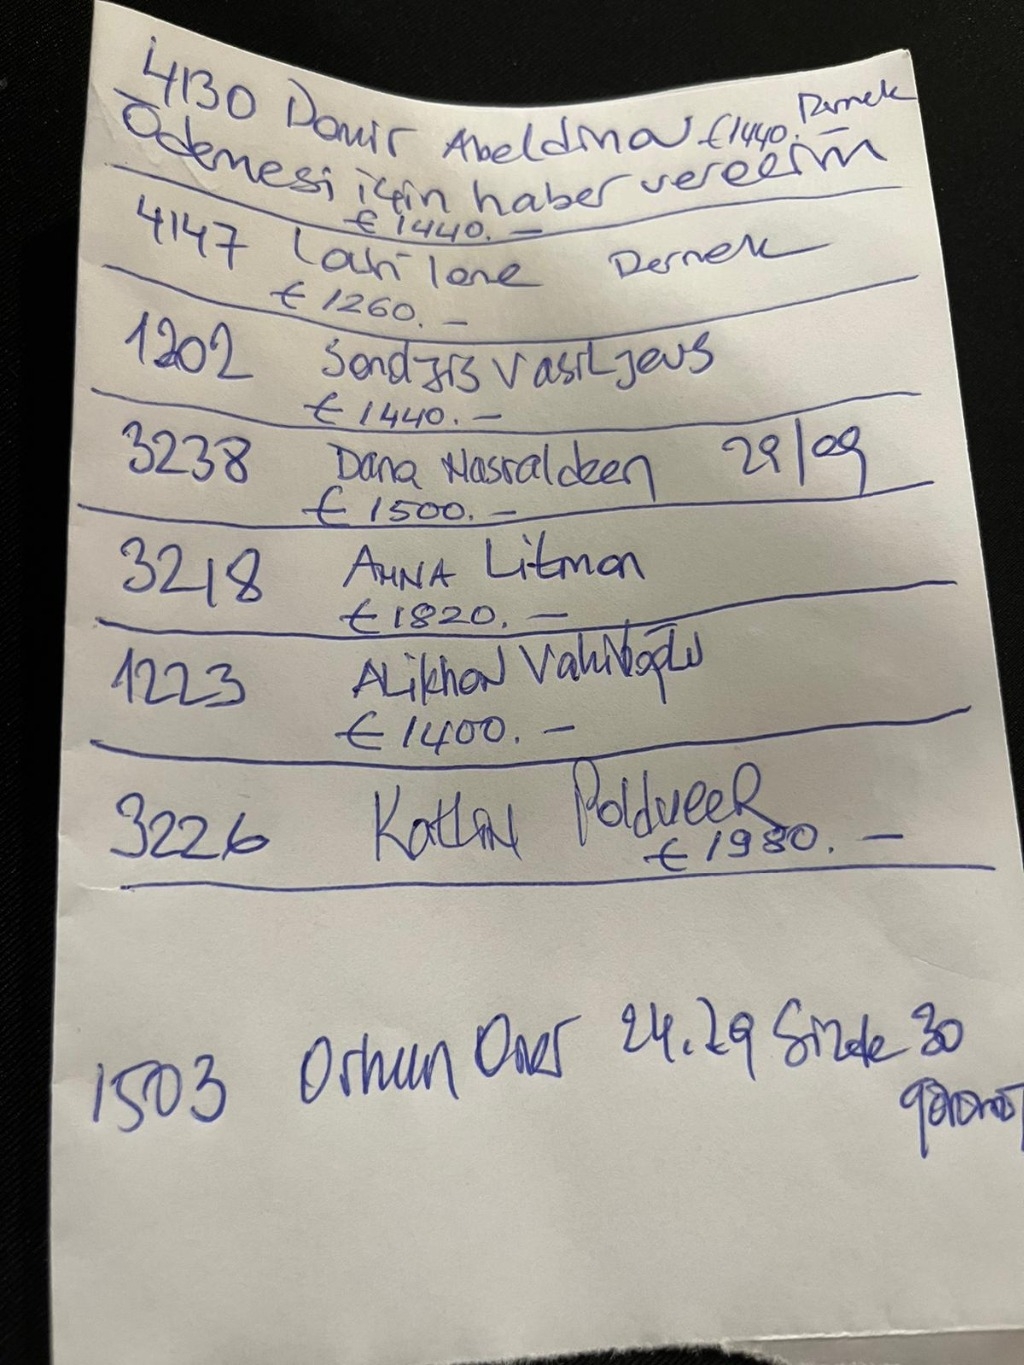 4130 Damir Abeldinov €1440. Dernek
Ödemesi için haber verelim
€ 1440. —
4147 Lasri Ione Dernek
€ 1260. —
1202 Sandzis Vasiljevs
€ 1440. —
3238 Dana Nasraldeen 29/09
€ 1500. —
3218 Anna Litman
€ 1820. —
1223 Alikhan
€ 1400. —
3226 Katlin Poldveer
€ 1980. —
1503 Orhun Öner 24.29 Sizde 30